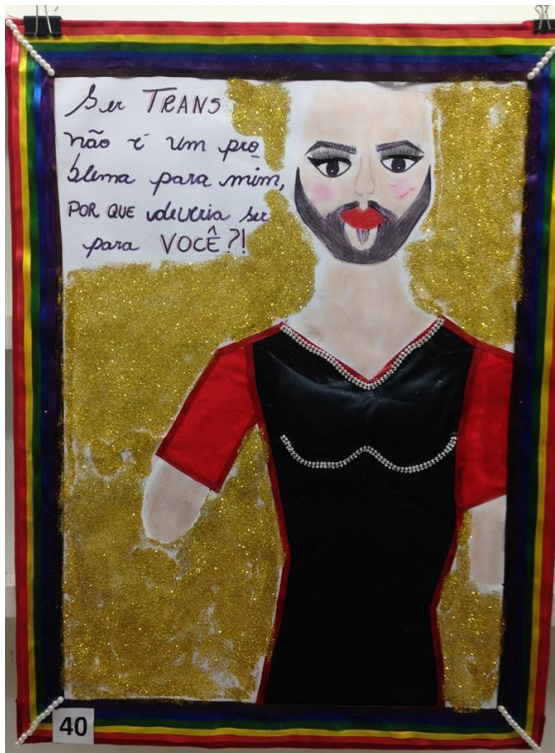 Ser TRANS
não é um pro
blema para mim,
POR QUE deveria ser
para VOCÊ?!
40